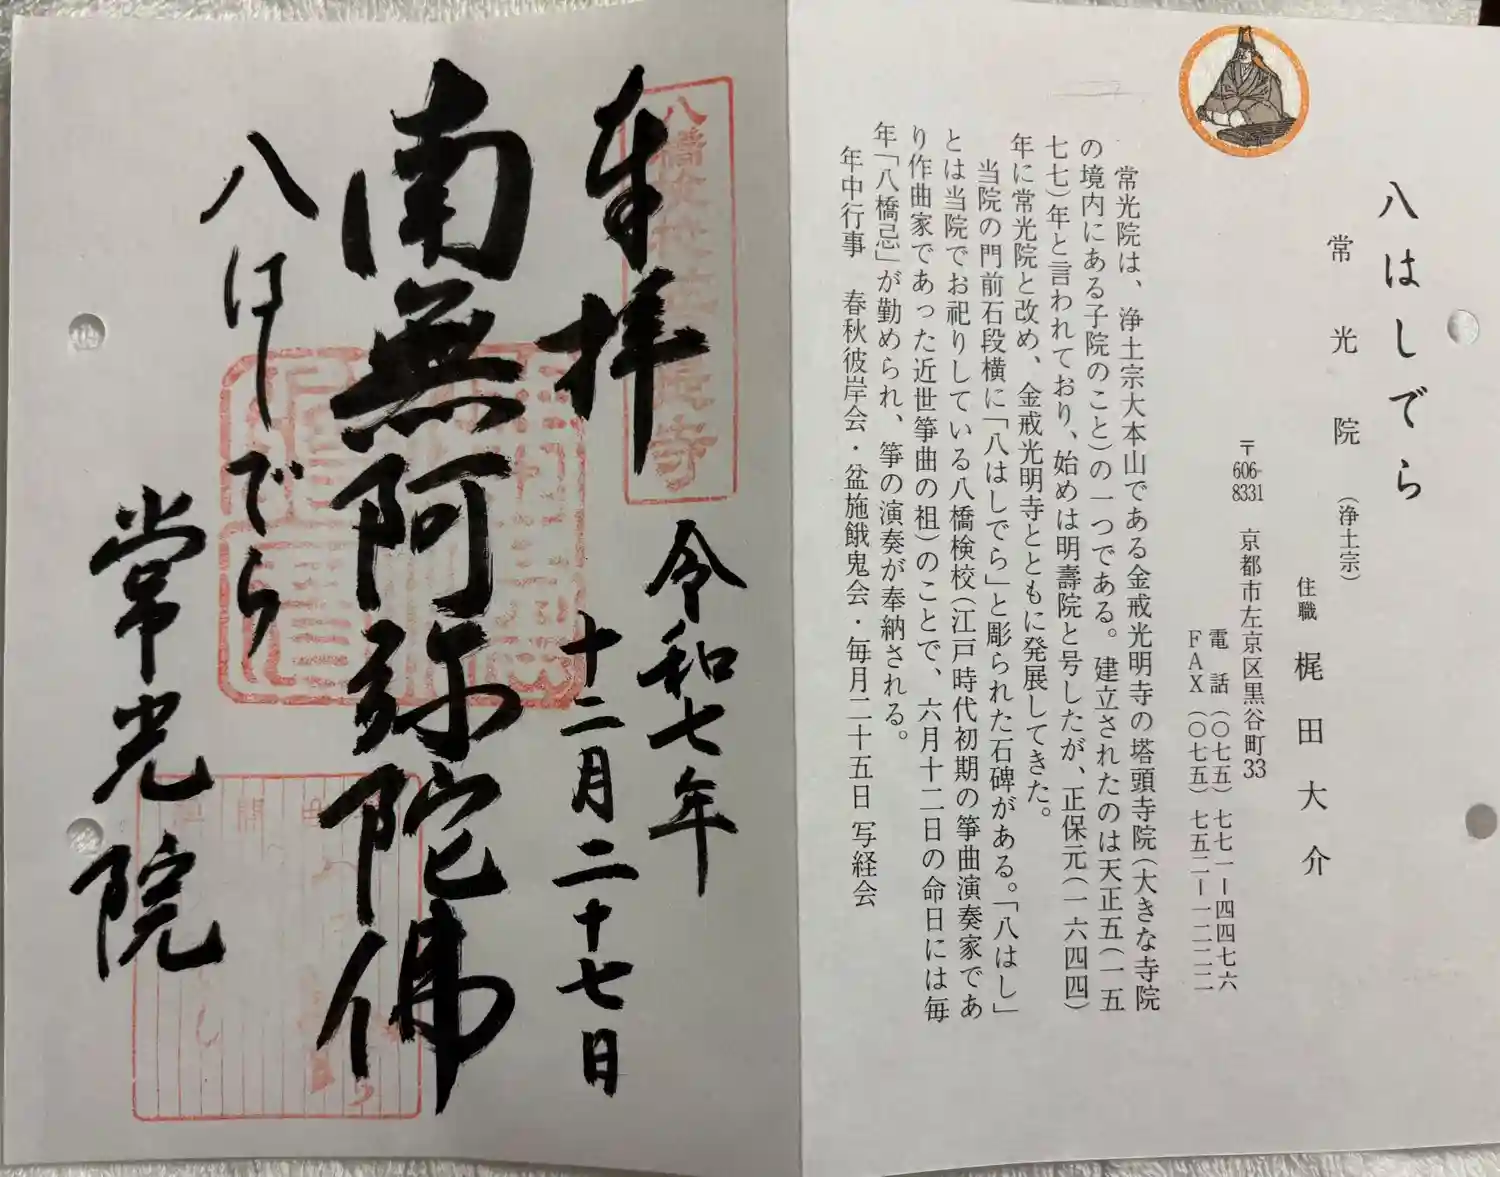 八はしでら
常光院（浄土宗）
住職 梶田大介
〒606-8331 京都市左京区黒谷町33
電話（〇七五）七七一ー四四七六
ＦＡＸ（〇七五）七五二ー一二二二
常光院は、浄土宗大本山である金戒光明寺の塔頭寺院（大きな寺院
の境内にある子院のこと）の一つである。建立されたのは天正五（一五
七七）年と言われており、始めは明壽院と号したが、正保元（一六四四）
年に常光院と改め、金戒光明寺とともに発展してきた。
当院の門前石段横に「八はしでら」と彫られた石碑がある。「八はし」
とは当院でお祀りしている八橋検校（江戸時代初期の箏曲演奏家であ
り作曲家であった近世箏曲の祖）のことで、六月十二日の命日には毎
年「八橋忌」が勤められ、箏の演奏が奉納される。
年中行事 春秋彼岸会・盆施餓鬼会・毎月二十五日 写経会
奉拝
令和七年
十二月二十七日
南無阿弥陀佛
八はしでら
常光院